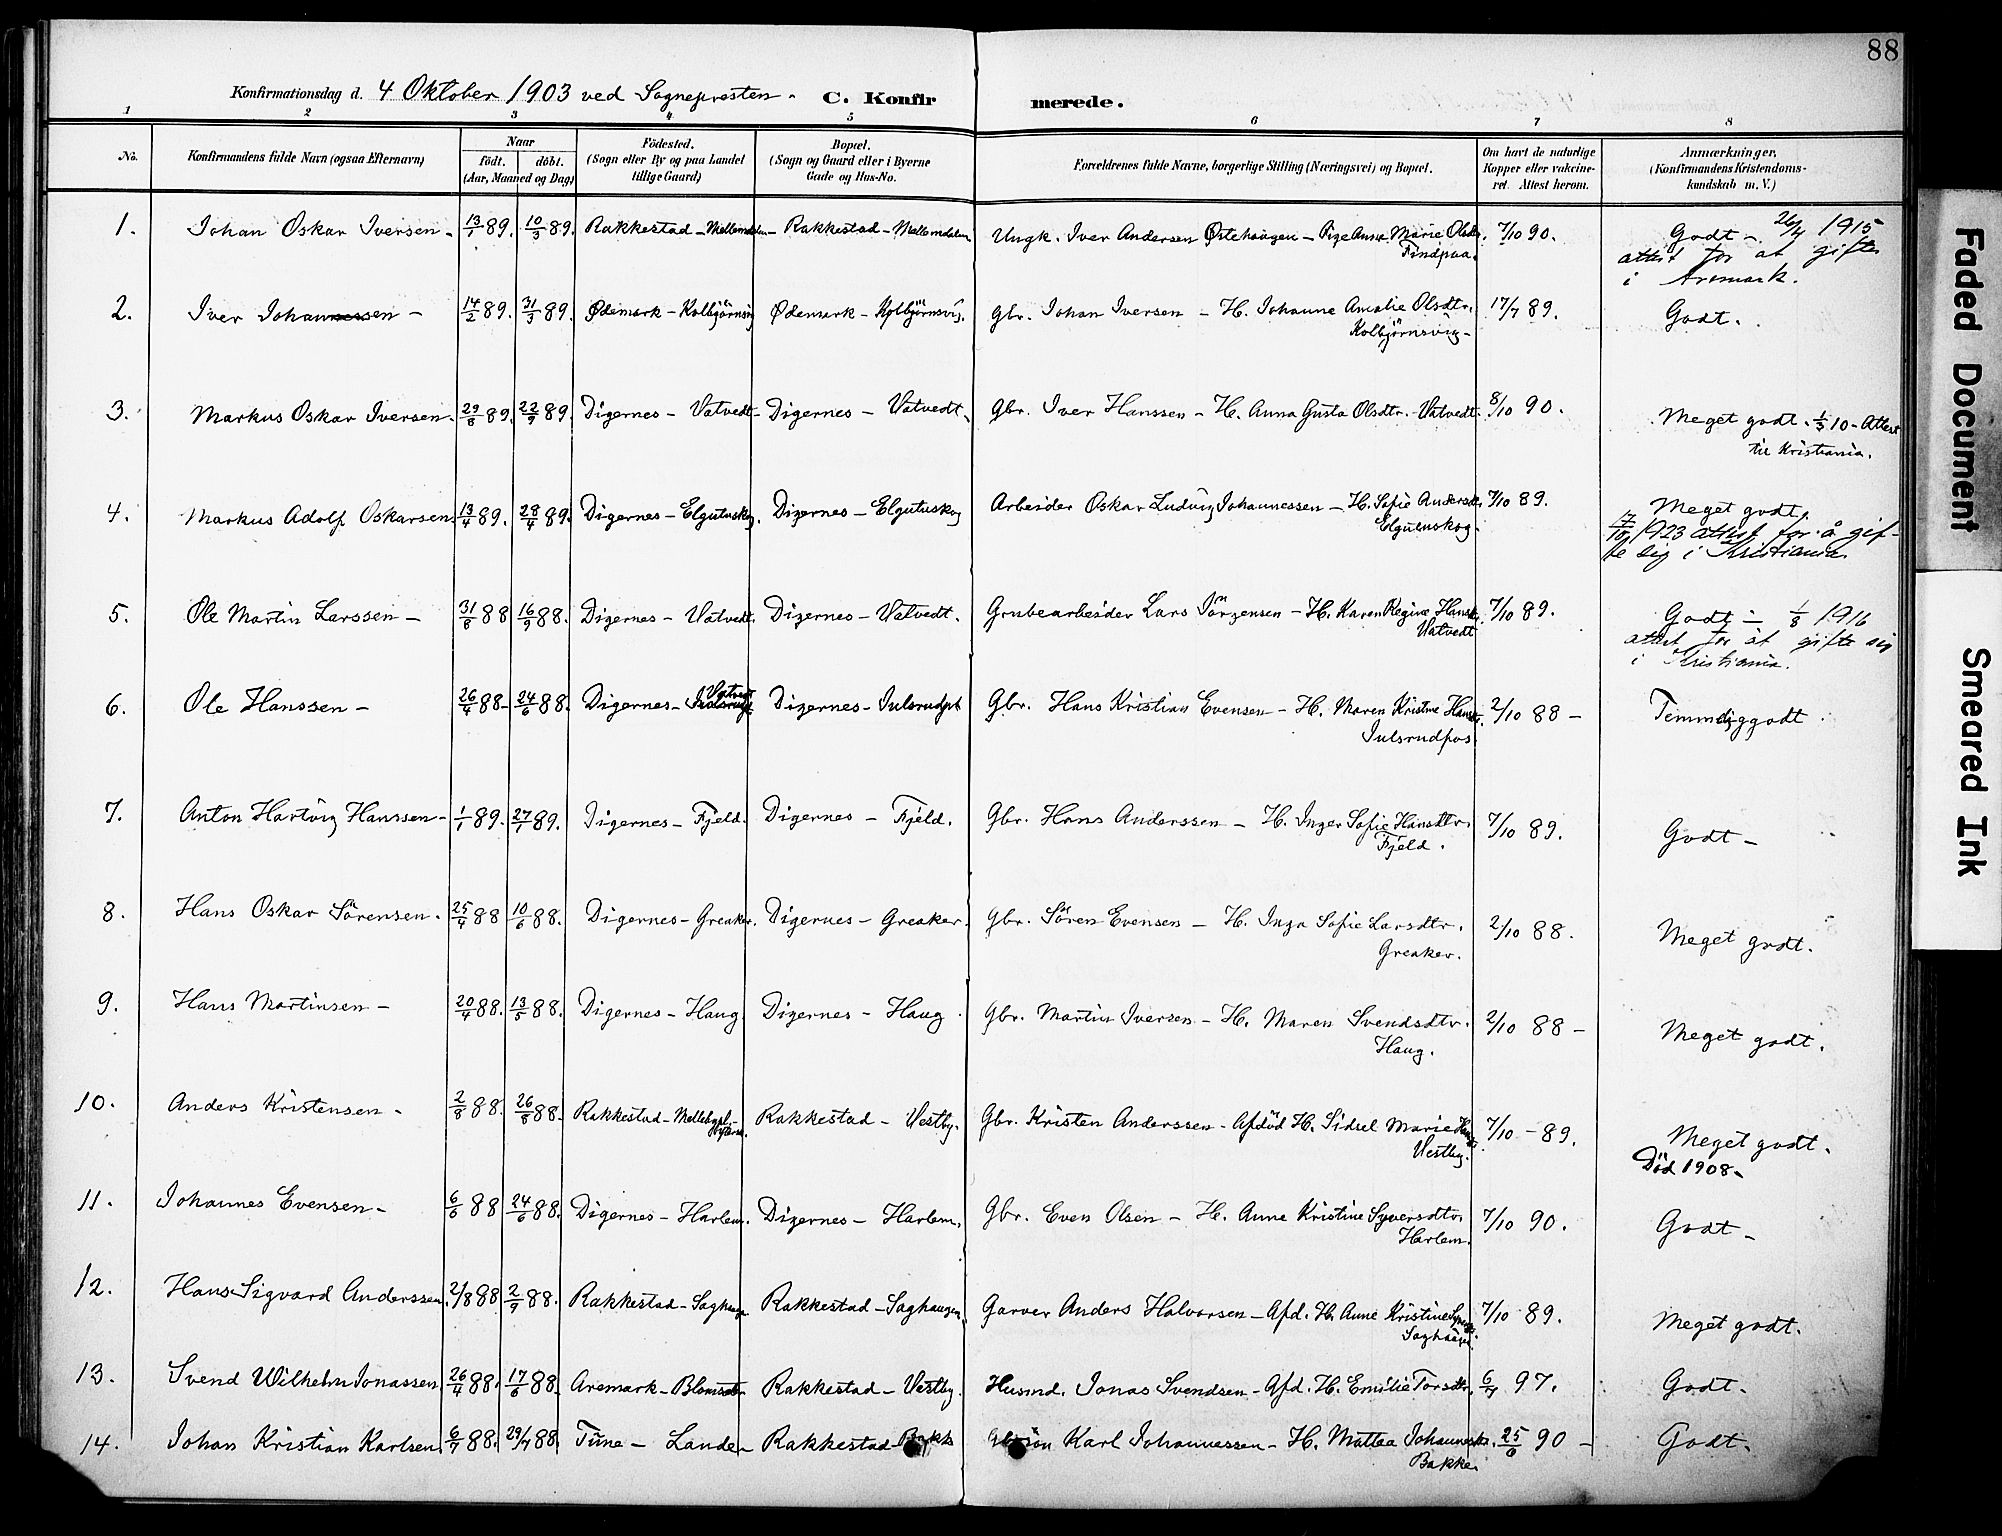 88
Konfirmationsdag d. 4 Oktober 1903 ved Sognepresten - C. Konfirmerede.
1 2 3 4 5 6 7 8
No. Konfirmandens fulde Navn (ogsaa Efternavn) Naar født. døbt. (Aar, Maaned og Dag) Födested. (Sogn eller By og paa Landet tillige Gaard) Bopæl. (Sogn og Gaard eller i Byerne Gade og Hus-No. Forældrenes fulde Navne, borgerlige Stilling (Næringsvei) og Bopæl. Om havt de naturlige Kopper eller vakcineret. Attest herom. Anmærkninger. (Konfirmandens Kristendomskundskab m. V.)
1. Johan Oskar Iversen - 13/1 89. 10/3 89. Rakkestad - Mellemdalen - Rakkestad - Mellemdalen Ungk. Iver Andersen Østehaugen - Pige Anne Marie Olsdtr. 7/10 90. Godt - 26/4 1915
Findpaa. attest for at gifte
i Aremark.
2. Iver Johannessen - 14/2 89. 31/3 89. Ødemark - Kolbjörnsvig Ødemark - Kolbjörnsvig. Gbr. Johan Iversen - H. Johanne Amalie Olsdtr. 17/7 89. Godt.
Kolbjörnsvig -
3. Markus Oskar Iversen - 29/8 89. 22/9 89. Digernes - Vatvedt - Digernes - Vatvedt. Gbr. Iver Hanssen - H. Anna Gusta Olsdtr. - Vatvedt. 8/10 90. Meget godt. 1/3 10 - Attest
til Kristiania.
4. Markus Adolf Oskarsen. 13/4 89. 28/4 89. Digernes - Elgutuskog. Digernes - Elgutuskog Arbeider Oskar Ludvig Johannessen - H. Sofie Andersdtr 7/10 89. Meget godt.
Elgutuskog. 17/10 1923 attest for å gif-
te sig i Kristiania
5. Ole Martin Larssen - 31/8 88 16/9 88. Digernes - Vatvedt. Digernes - Vatvedt. Grubearbeider Lars Jörgensen - H. Karen Regine Hansdtr 7/10 89. Godt - 1/8 1916
Vatvedt attest for at gifte sig
i Kristiania.
6. Ole Hanssen - 26/4 88 - 24/6 88. Digernes - Vatvedt Digernes - Julsrudpt Gbr. Hans Kristian Evensen - H. Maren Kristine Hansdtr. 2/10 88 - Temmelig godt
Julsrudpos
7. Anton Hartvig Hanssen - 1/1 89. 27/1 89. Digernes - Fjeld. Digernes - Fjeld. Gbr. Hans Anderssen - H. Inger Sofie Hansdtr. 7/10 89. Godt -
Fjeld.
8. Hans Oskar Sörensen. 25/4 88 10/6 88. Digernes - Greaker. Digernes - Greaker. Gbr. Sören Evensen - H. Inga Sofie Larsdtr. 2/10 88. Meget godt.
Greaker.
9. Hans Martinsen - 20/4 88. 13/5 88. Digernes - Haug. Digernes - Haug Gbr. Martin Iversen - H. Maren Svendsdtr. 2/10 88 - Meget godt.
Haug.
10. Anders Kristensen - 2/8 88. 26/8 88. Rakkestad - Rakkestad - Vestby. Gbr. Kristen Anderssen - Afdöd H. Sidsel Marie 7/10 - 89. Meget godt.
Vestby. Död 1908 -
11. Johannes Evensen - 6/6 88 24/6 88. Digernes - Harlem. Digernes - Harlem. Gbr. Even Olsen - H. Anne Kristine Syversdtr. 7/10 90. Godt -
Harlem.
12. Hans Sigvard Anderssen. 2/8 88 2/9 88. Rakkestad - Saghaugen Rakkestad - Saghaugen. Garver Anders Halvorsen - Afd. H. Anne Kristine 7/10 89. Meget godt.
Saghaugen
13. Svend Wilhelm Jonassen 26/4 88. 17/6 88. Aremark - Rakkestad - Vestby. Husmd. Jonas Svendsen - Afd. H. Emilie Torsdtr. 6/7 97. Godt.
14. Johan Kristian Karlsen 6/7 88. 29/7 88. Tune - Lande - Rakkestad - Bakke Karl Johannessen - H. Mattea Johannesdtr. 25/6 90 - Godt.
Bakke.
Faded Document
Smeared Ink